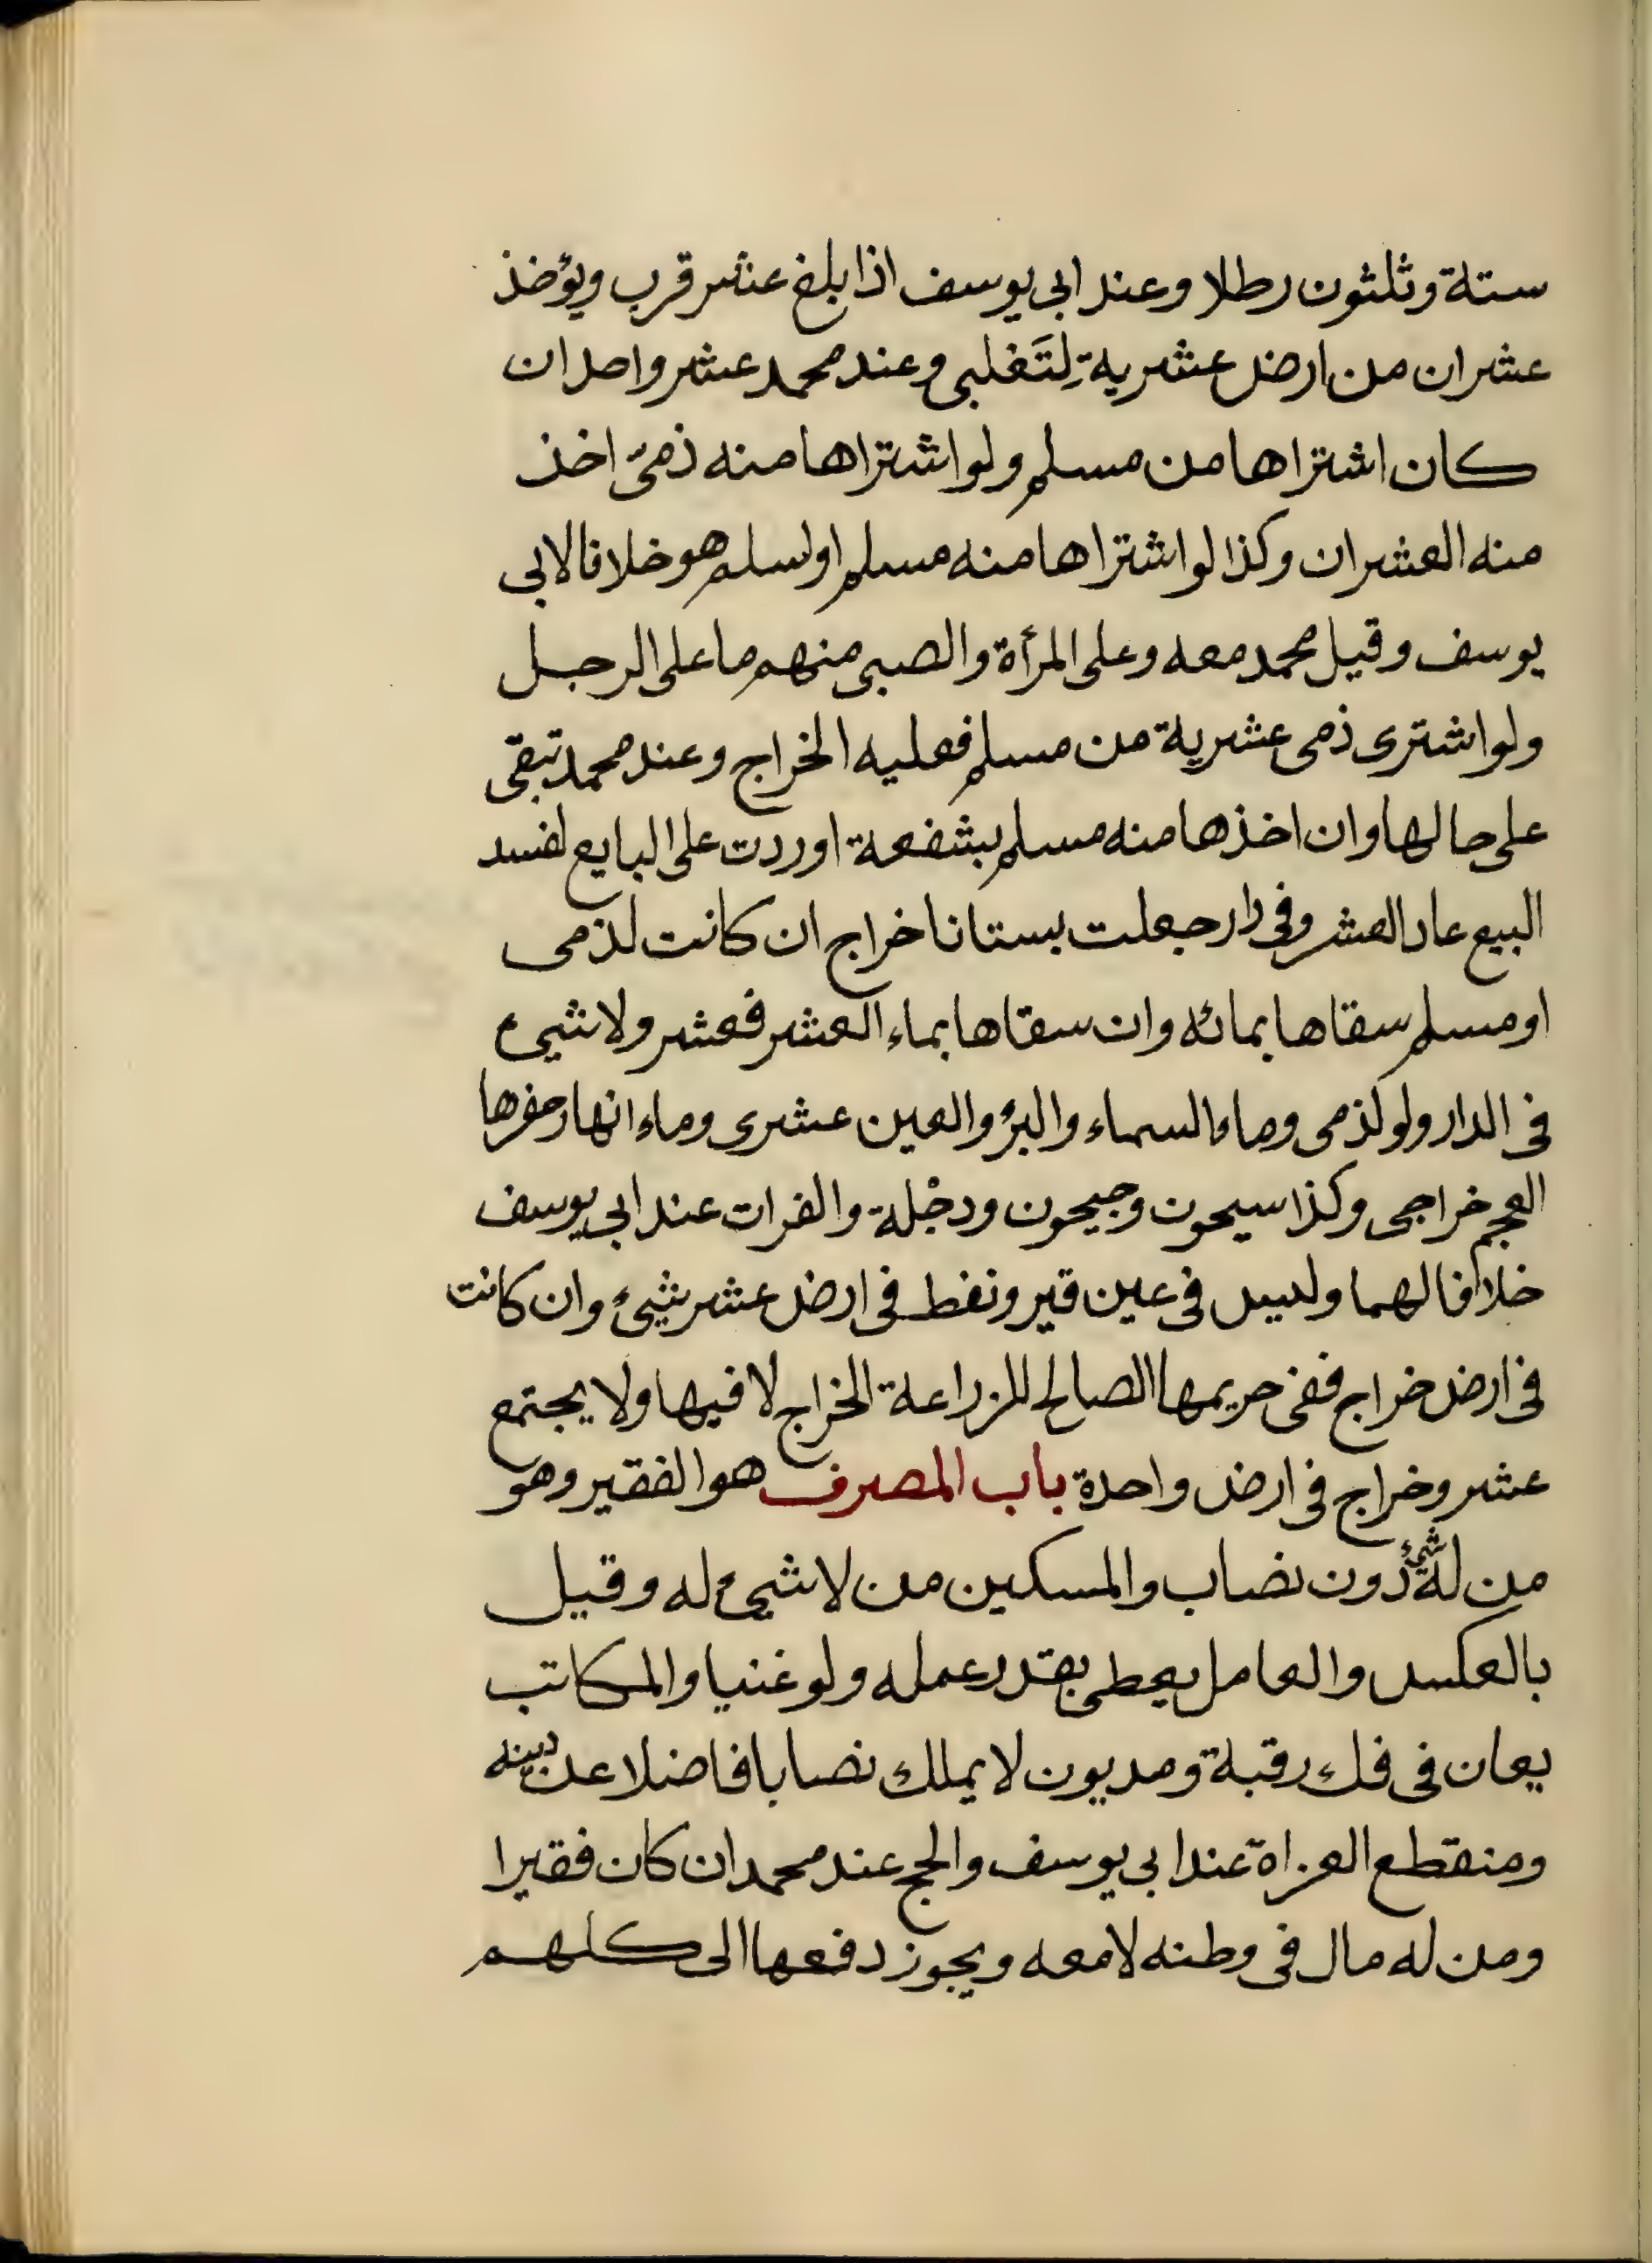 ستة وثلثون رطلا وعند ابى يوسف اذا بلغ عشر قرب ويؤخذ
عشران من ارض عشرية لِتَغلبى وعند محمد عشر واحد ان
كان اشتراها من مسلم ولو اشتراها منه ذمىّ اخذ
منه العشران وكذا لو اشتراها منه مسلم او اسلم هو خلافا لابى
يوسف وقيل محمد معه وعلى المرأة والصبى منهم ما على الرجل
ولو اشترى ذمى عشرية من مسلم فعليه الخراج وعند محمد تبقى
على حالها وان اخذها منه مسلم بشفعة او ردت على البايع لفسد
البيع عاد العشر وفى دار جعلت بستانا خراج ان كانت لذمى
او مسلم سقاها بمائه وان سقاها بماء العشر فعشر ولا شيء
فى الدار ولو لذمى وماء السماء والبئر والعين عشرى وماء انهار حفرها
العجم خراجى وكذا سيحون وجيحون ودجلة والفرات عند ابى يوسف
خلافا لهما وليس فى عين قير ونفط فى ارض عشر شيئ وان كانت
فى ارض خراج ففى حريمها الصالح للزراعة الخراج لا فيها ولا يجتمع
عشر وخراج فى ارض واحدة باب المصرف هو الفقير وهو
من له شئ دون نصاب والمسكين من لا شيء له وقيل
بالعكس والعامل يعطى بقدر عمله ولو غنيا والمكاتب
يعان فى فك رقبة ومديون لا يملك نصابا فاضلا عن دينه
ومنقطع الغزاة عند ابى يوسف والحج عند محمد ان كان فقيرا
ومن له مال فى وطنه لا معه ويجوز دفعها الى كلهم